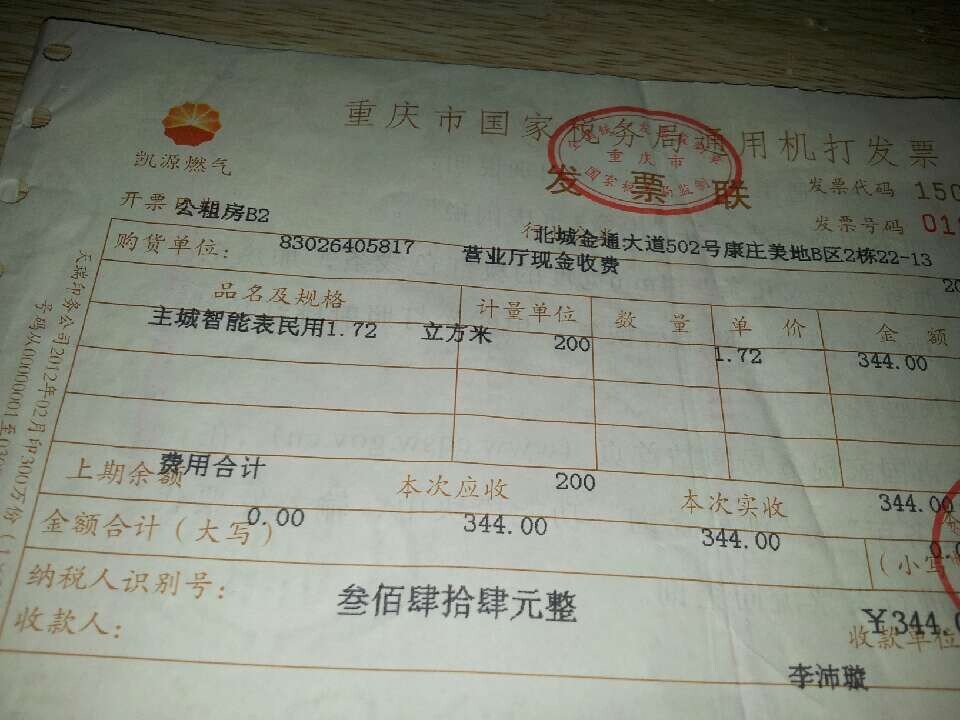 重庆市国家税务局通用机打发票
凯源燃气
发票联
重庆市
发票代码 150
开票日期
公租房B2
发票号码 01
北城金通大道502号康庄美地B区2栋22-13
购货单位: 83026405817 营业厅现金收费
20
品名及规格 计量单位 数量 单价 金额
主城智能表民用1.72 立方米 200 1.72 344.00
费用合计 200 344.00
上期余额 本次应收 本次实收
0.00 344.00 344.00 0.0
金额合计(大写) (小写
叁佰肆拾肆元整 ¥344.0
纳税人识别号:
收款人: 收款单位
李沛璇
天瑞印务公司2012年02月印30万份
号码从00000001至